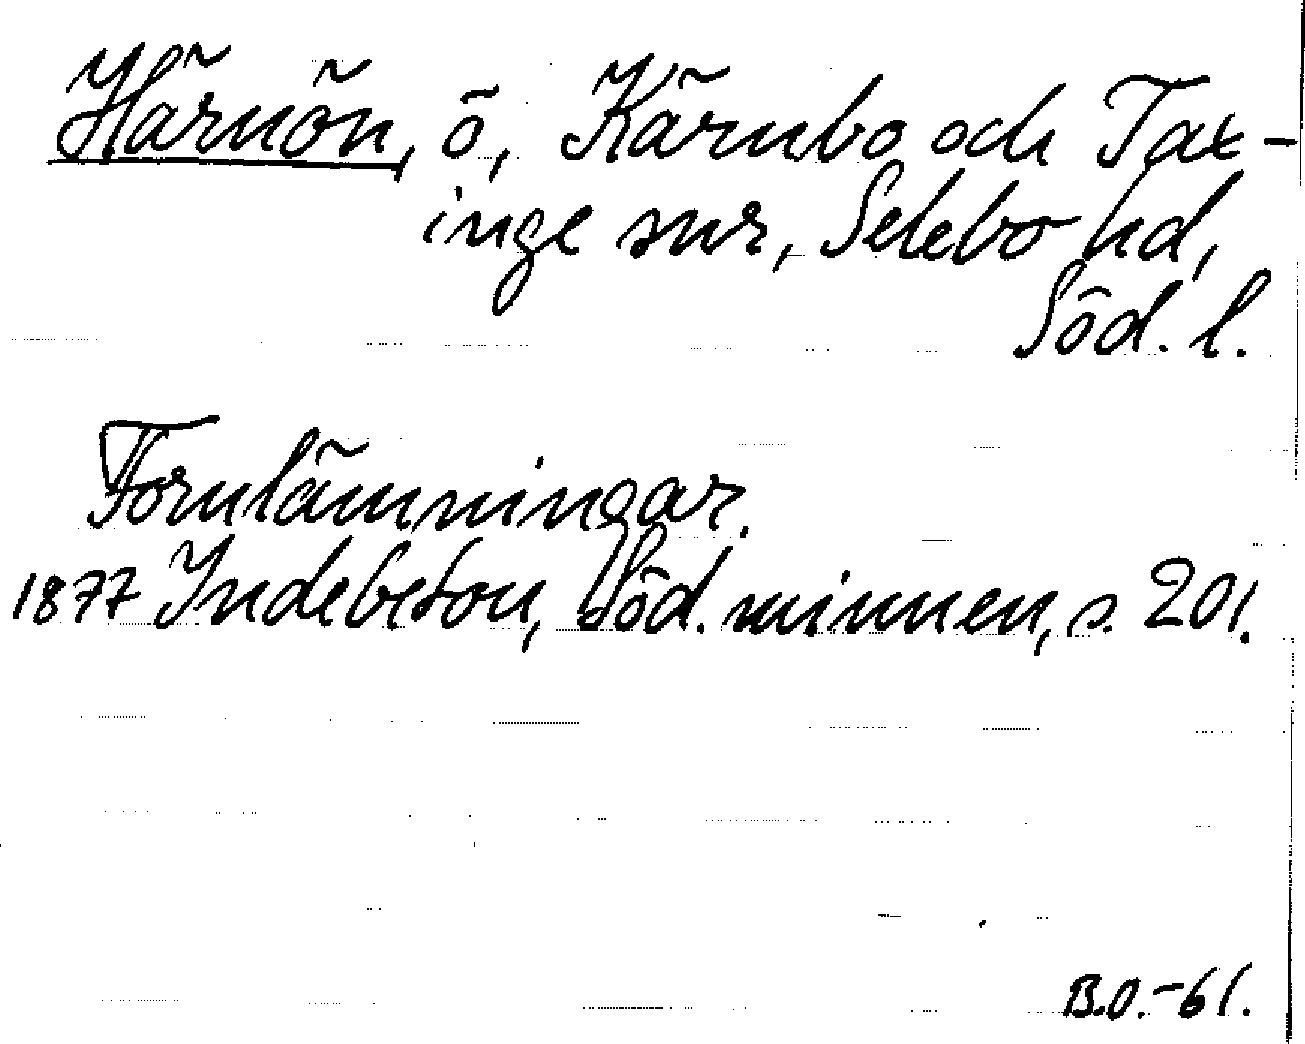 Härnön, ö, Kärnbo och Tax-
inge snr, Selebo hd,
Söd. l.
Fornlämningar.
1877 Indebetou, Söd. minnen, s. 201.
B.O.-61.